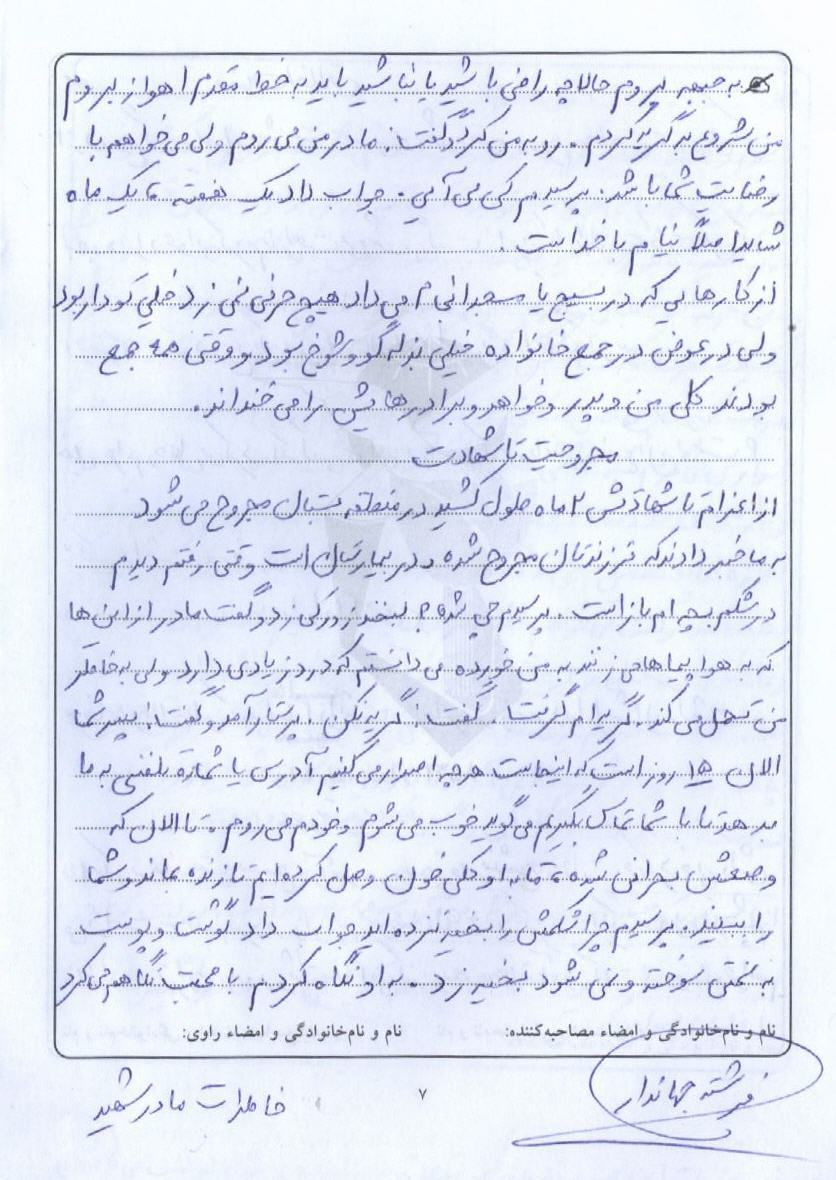 به جبهه بروم حالا چه راضی باشید یا نباشید باید به خط مقدم اهواز بروم
من شروع به گریه کردم . رو به من کرد و گفت: مادر من می روم ولی می خواهم با
رضایت شما باشد. پرسیدم کی می آیی . جواب داد یک هفته ، یک ماه
شاید اصلاً نیام با خداست .
از کارهایی که در بسیج یا سخنرانی انجام می داد هیچ حرفی نمی زد خیلی تودار بود
ولی در عوض در جمع خانواده خیلی بذله گو و شوخ بود و وقتی همه جمع
بودند کلی من و پدر و خواهر و برادرهایش را می خنداند .
مجروحیت تا شهادت
از اعزام تا شهادتش ۲ ماه طول کشید در منطقه مجروح می شود
به ما خبر دادند که فرزندتان مجروح شده و در بیمارستان است وقتی رفتم دیدم
در شکم بچه ام باز است . پرسیدم چی شده ؟ لبخند زورکی زد و گفت مادر از این ها
که به هواپیماها می زنند به من خورده می دانستم که درد زیادی دارد ولی به خاطر
من تحمل می کند، گریه ام گرفت . گفت: گریه نکن . پرستار آمد و گفت: پسر شما
الان ۱۵ روز است که اینجاست هر چه اصرار می کنیم آدرس یا شماره تلفنی به ما
بدهد تا با شما تماس بگیریم می گوید خوب می شوم و خودم می روم . تا الان که
وضعش بحرانی شده ، ما به او کلی خون وصل کرده ایم تا زنده بماند و شما
را ببیند . پرسیدم چرا شکمش را بخیه نزده اید جواب داد گوشت و پوست
به سختی سوخته و نمی شود بخیه زد . به او نگاه کردم با محبت نگاهم می کرد
نام و نام‌خانوادگی و امضاء مصاحبه‌کننده: نام و نام‌خانوادگی و امضاء راوی:
فرشته جهاندار ۷ خاطرات مادر شهید